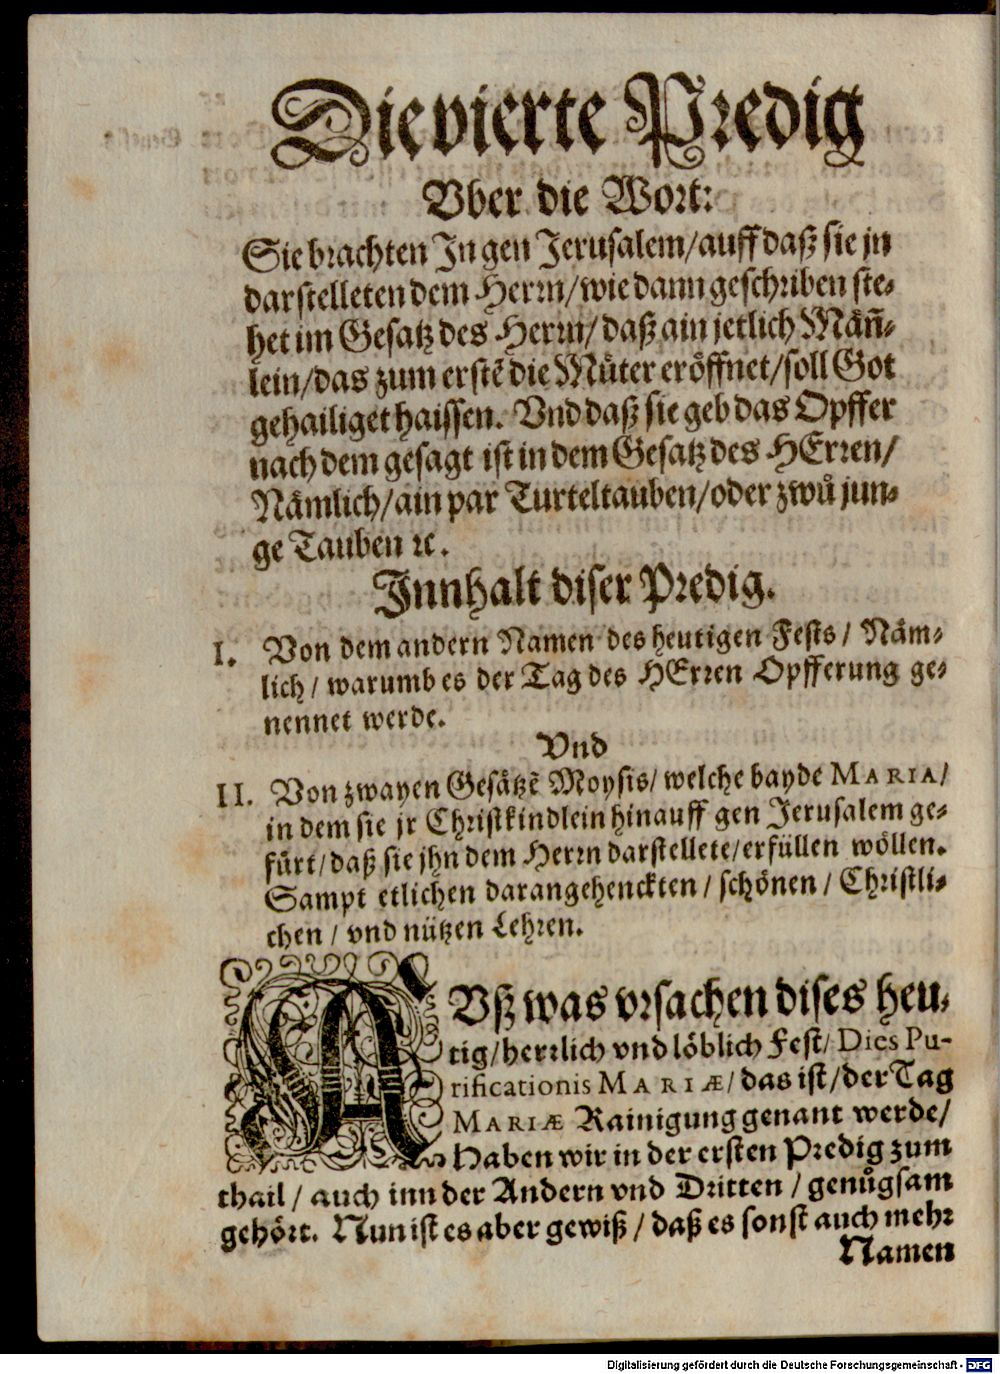 Die vierte Predig
Vber die Wort:
Sie brachten Jn gen Jerusalem/auff daß sie jn
darstelleten dem Herrn/wie dann geschriben ste-
het im Gesatz des Herrn/daß ain jetlich Män̄-
lein/das zum erstē die Můter eröffnet/soll Got
gehailiget haissen. Vnd daß sie geb das Opffer
nach dem gesagt ist in dem Gesatz des HErren/
Nämlich/ain par Turteltauben/oder zwů jun-
ge Tauben ꝛc.
Jnnhalt diser Predig.
I. Von dem andern Namen des heutigen Fests/ Näm-
lich/ warumb es der Tag des HErren Opfferung ge-
nennet werde.
Vnd
II. Von zwayen Gesätzē Moysis/ welche bayde MARIA/
in dem sie jr Christkindlein hinauff gen Jerusalem ge-
fürt/daß sie jhn dem Herrn darstellete/erfüllen wöllen.
Sampt etlichen darangehenckten/ schönen/ Christli-
chen/ vnd nützen Lehren.
AVß was vrsachen dises heu-
tig/herrlich vnd löblich Fest/ Dies Pu-
rificationis MARIÆ/ das ist/der Tag
MARIÆ Rainigung genant werde/
Haben wir in der ersten Predig zum
thail/ auch inn der Andern vnd Dritten/ genůgsam
gehört. Nun ist es aber gewiß/ daß es sonst auch mehr
Namen
Digitalisierung gefördert durch die Deutsche Forschungsgemeinschaft - DFG